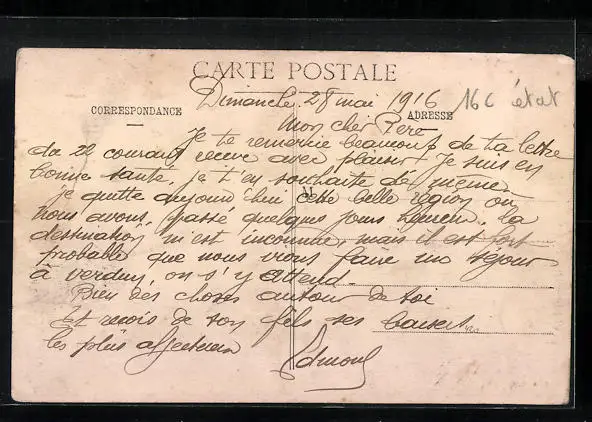 CARTE POSTALE
Dimanche 28 mai 1916 16 c état
CORRESPONDANCE
ADRESSE
Mon cher Père
Je te remercie beaucoup de ta lettre
du 22 courant recue avec plaisir. Je suis en
bonne santé, je t'en souhaite de même.
je quitte aujourd'hui cette belle région ou
nous avons passé quelques jours heureux. la
destination m'est inconnue, mais il est fort
probable que nous irons faire un séjour
à verdun, on s'y attend.
Bien des choses autour de toi
Et recois de ton fils ses baisers
les plus affectueux
Edmond